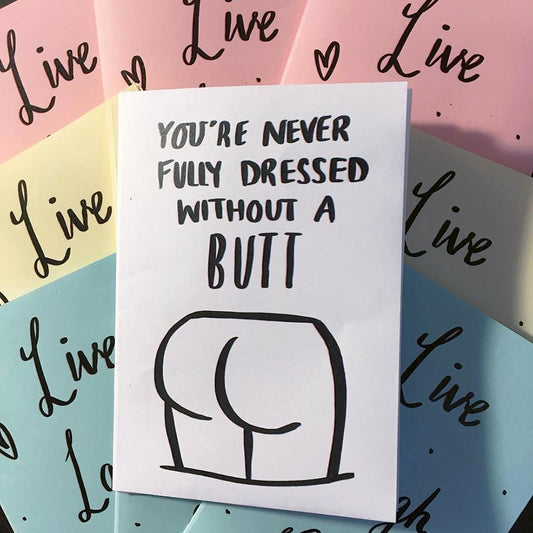 Live
Live
Live
YOU'RE NEVER
FULLY DRESSED
WITHOUT A
BUTT
Live
Live
Live
Live